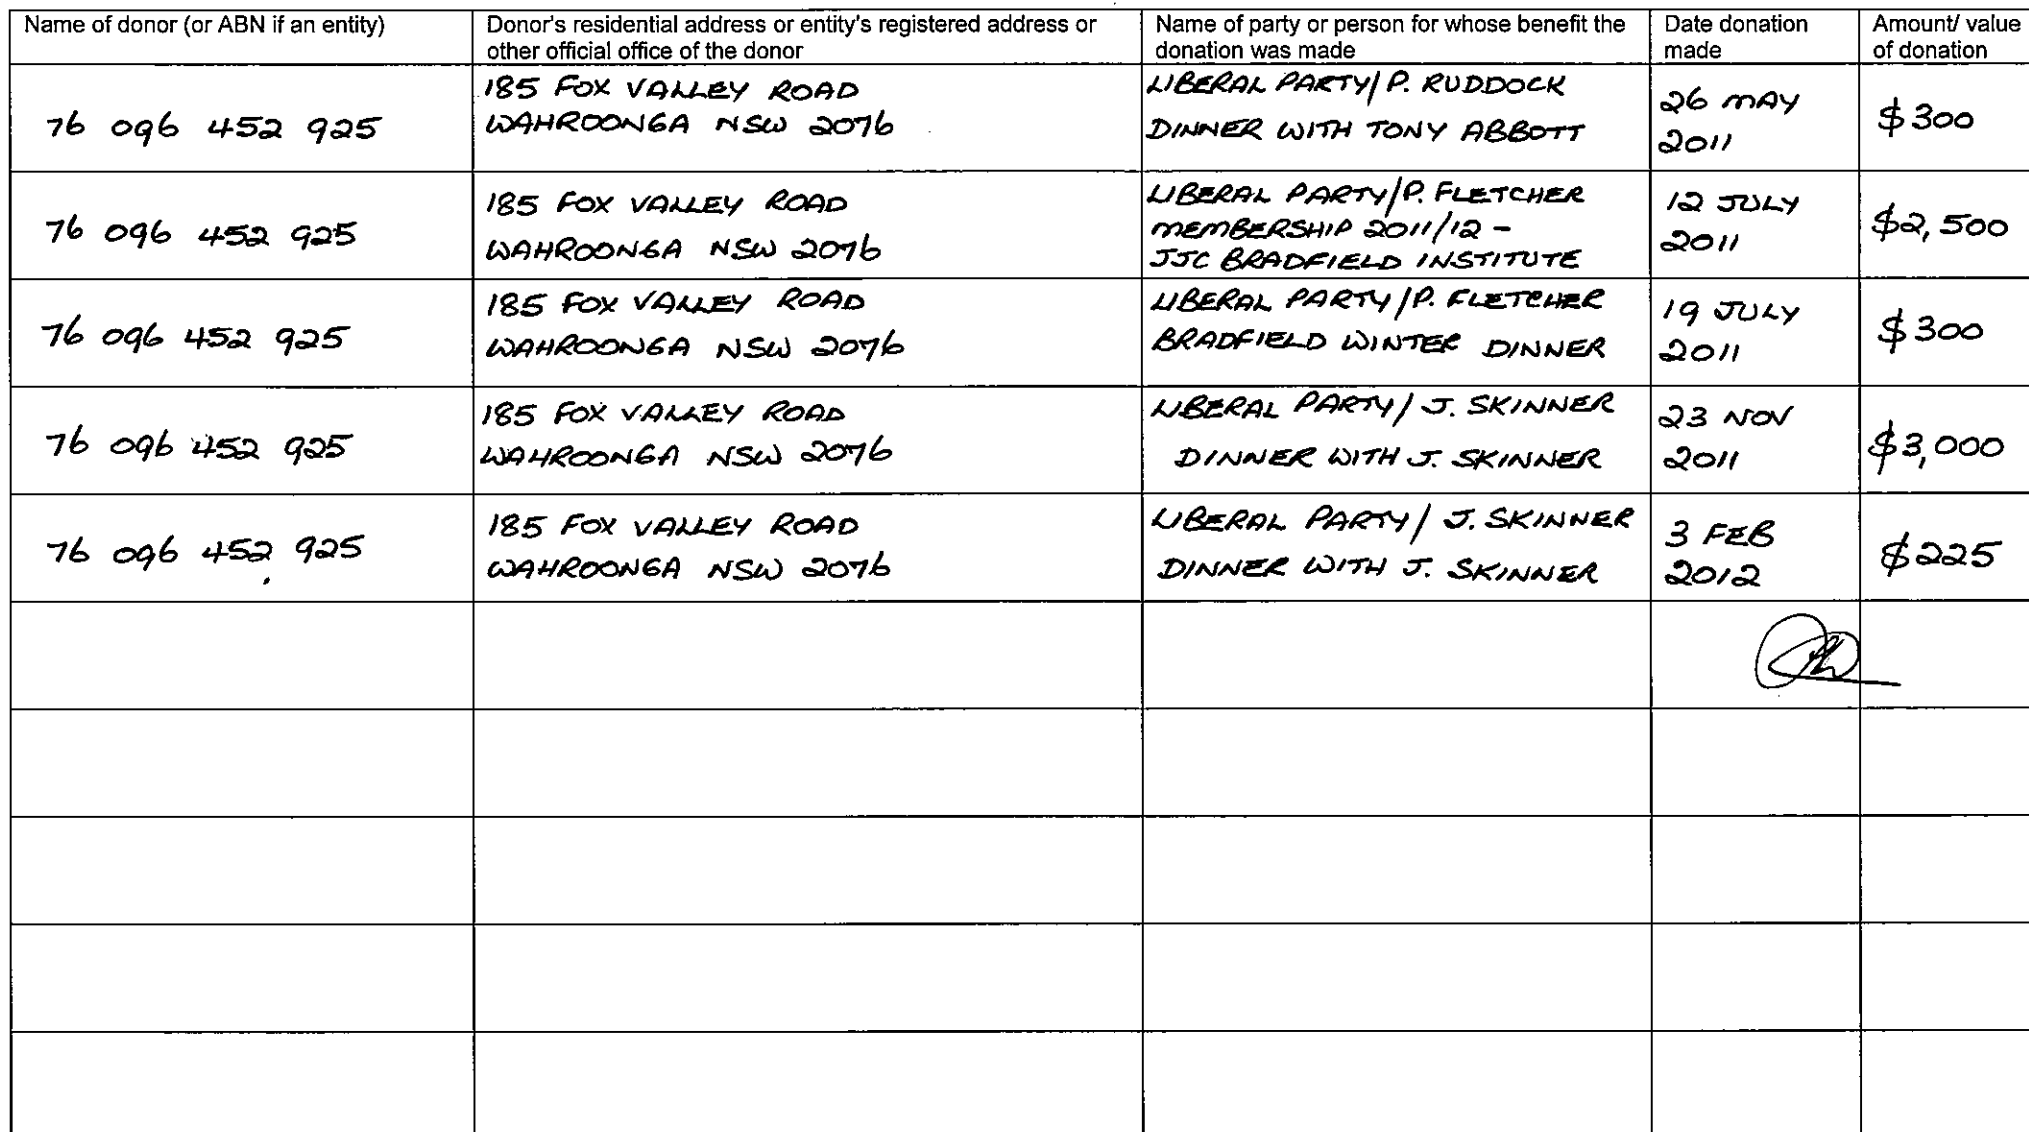 Name of donor (or ABN if an entity)
Donor's residential address or entity's registered address or
other official office of the donor
Name of party or person for whose benefit the
donation was made
Date donation
made
Amount/ value
of donation
76 096 452 925
185 FOX VALLEY ROAD
WAHROONGA NSW 2076
LIBERAL PARTY/P. RUDDOCK
DINNER WITH TONY ABBOTT
26 MAY
2011
$300
76 096 452 925
185 FOX VALLEY ROAD
WAHROONGA NSW 2076
LIBERAL PARTY/P. FLETCHER
MEMBERSHIP 2011/12 -
JJC BRADFIELD INSTITUTE
12 JULY
2011
$2,500
76 096 452 925
185 FOX VALLEY ROAD
WAHROONGA NSW 2076
LIBERAL PARTY/P. FLETCHER
BRADFIELD WINTER DINNER
19 JULY
2011
$300
76 096 452 925
185 FOX VALLEY ROAD
WAHROONGA NSW 2076
LIBERAL PARTY/ J. SKINNER
DINNER WITH J. SKINNER
23 NOV
2011
$3,000
76 096 452 925
185 FOX VALLEY ROAD
WAHROONGA NSW 2076
LIBERAL PARTY/ J. SKINNER
DINNER WITH J. SKINNER
3 FEB
2012
$225